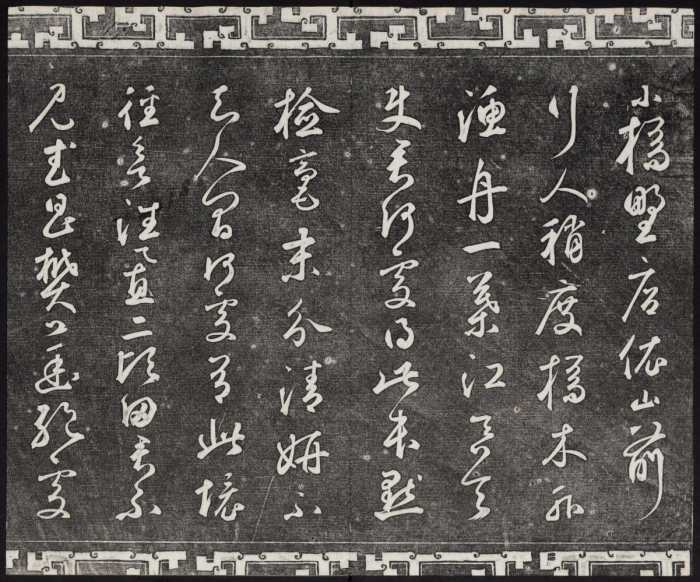 小橋野店依山前
行人稍度橋木外
漁舟一葉江吞天
使君何處得此本點
檢毫末分清妍不
知人間何處有此境
徑欲往置二頃田君不
見武昌樊口幽絕處